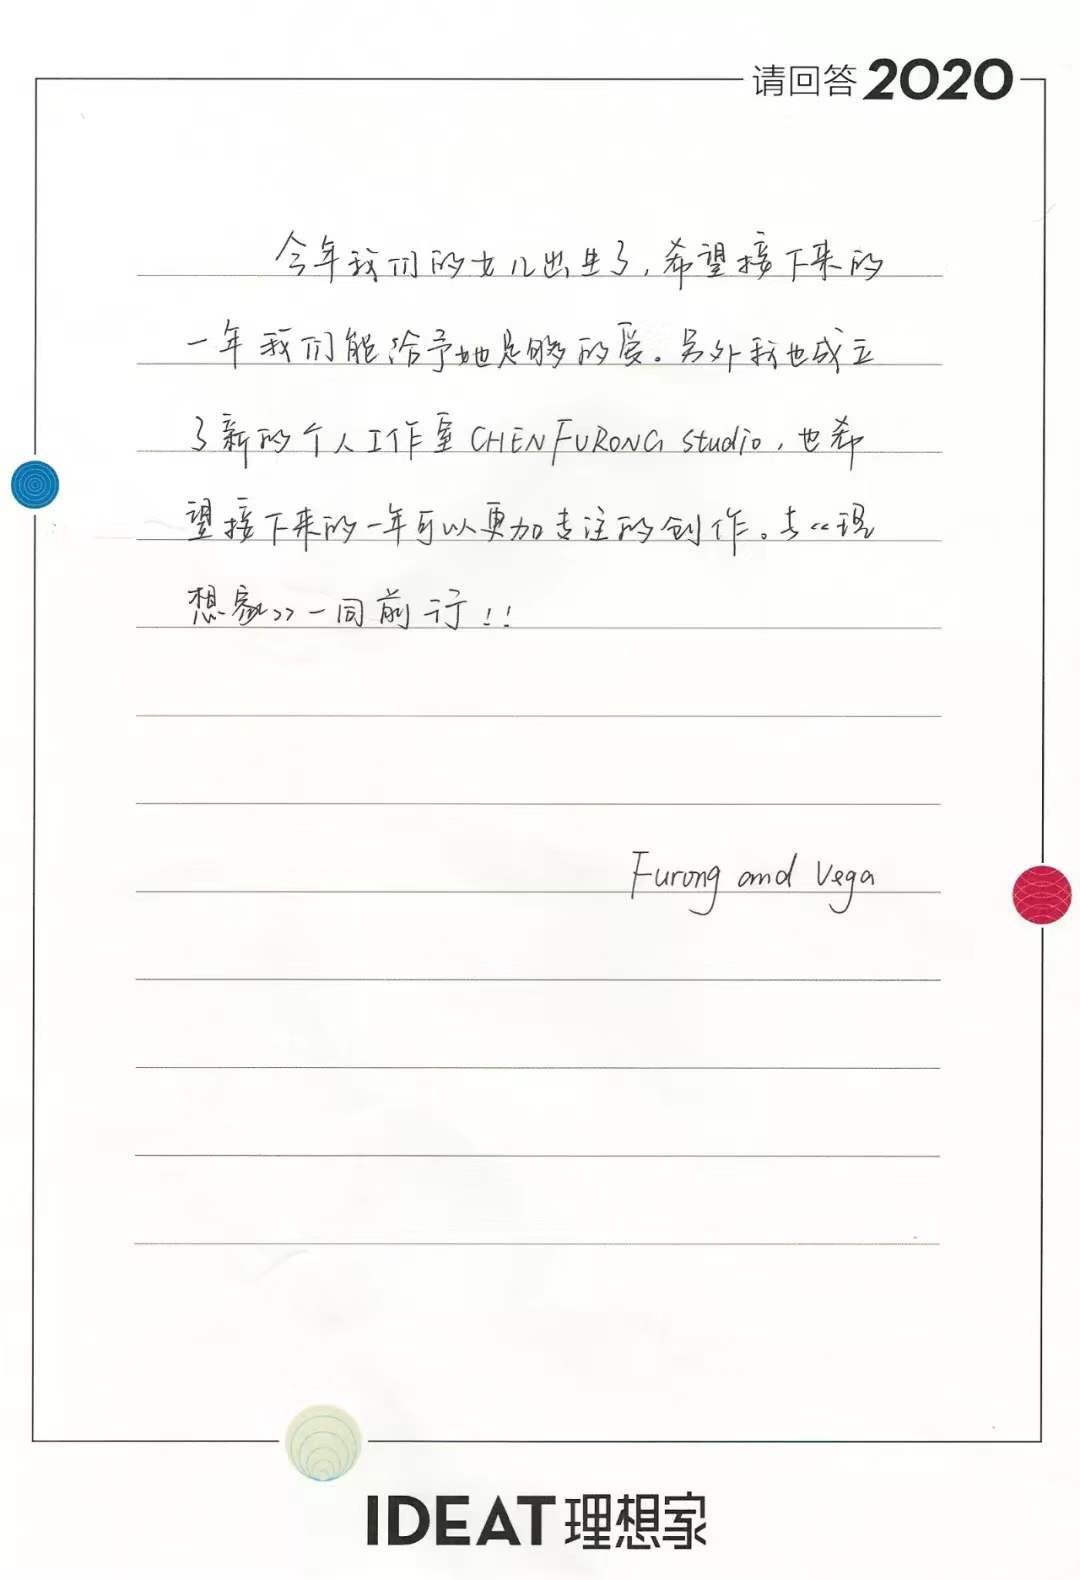 请回答2020
今年我们的女儿出生了,希望接下来的
一年我们能给予她足够的爱。另外我也成立
了新的个人工作室CHEN FURONG studio,也希
望接下来的一年可以更加专注的创作。与《理
想家》一同前行!!
Furong and Vega
IDEAT理想家